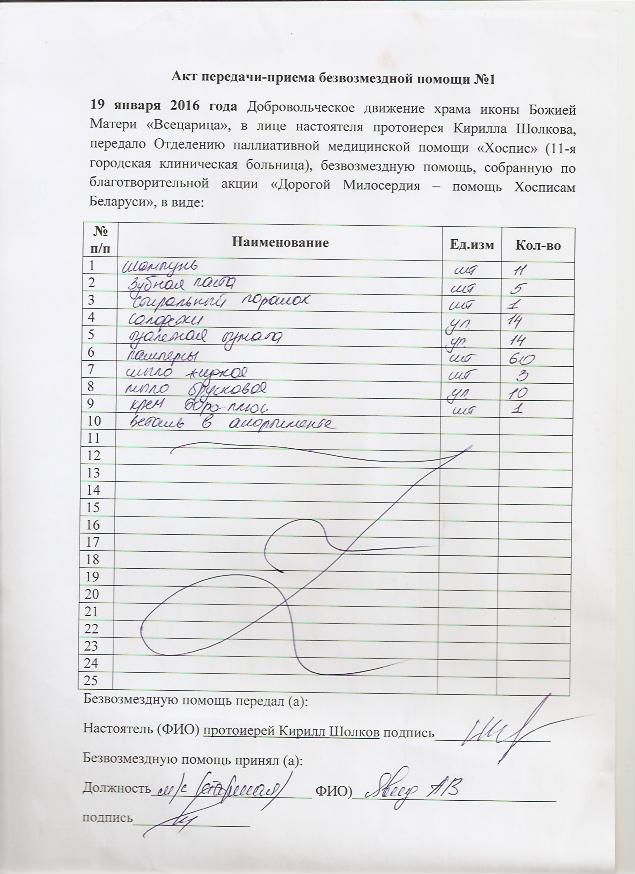 Акт передачи-приема безвозмездной помощи №1
19 января 2016 года Добровольческое движение храма иконы Божией
Матери «Всецарица», в лице настоятеля протоиерея Кирилла Шолкова,
передало Отделению паллиативной медицинской помощи «Хоспис» (11-я
городская клиническая больница), безвозмездную помощь, собранную по
благотворительной акции «Дорогой Милосердия – помощь Хосписам
Беларуси», в виде:
№ п/п Наименование Ед.изм Кол-во
1 шампунь шт 11
2 Зубная паста шт 5
3 Стиральный порошок шт 1
4 салфетки уп 14
5 туалетная бумага уп 14
6 памперсы шт 60
7 мыло жидкое шт 3
8 мыло брусковое уп 10
9 крем боро плюс шт 1
10 в ассортименте
11
12
13
14
15
16
17
18
19
20
21
22
23
24
25
Безвозмездную помощь передал (а):
Настоятель (ФИО) протоиерей Кирилл Шолков подпись
Безвозмездную помощь принял (а):
Должность м/с (старшая) ФИО) АВ
подпись